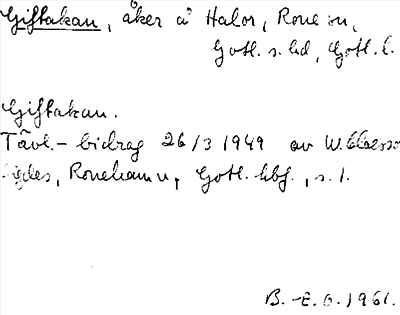 Giftakan, åker å Halor, Rone sn,
Gotl. s. hd, Gotl. l.
Giftakan.
Tävl.- bidrag 26/3 1949 av W.
Ronehamn, Gotl. , s. 1.
B. -E. O. 1961.